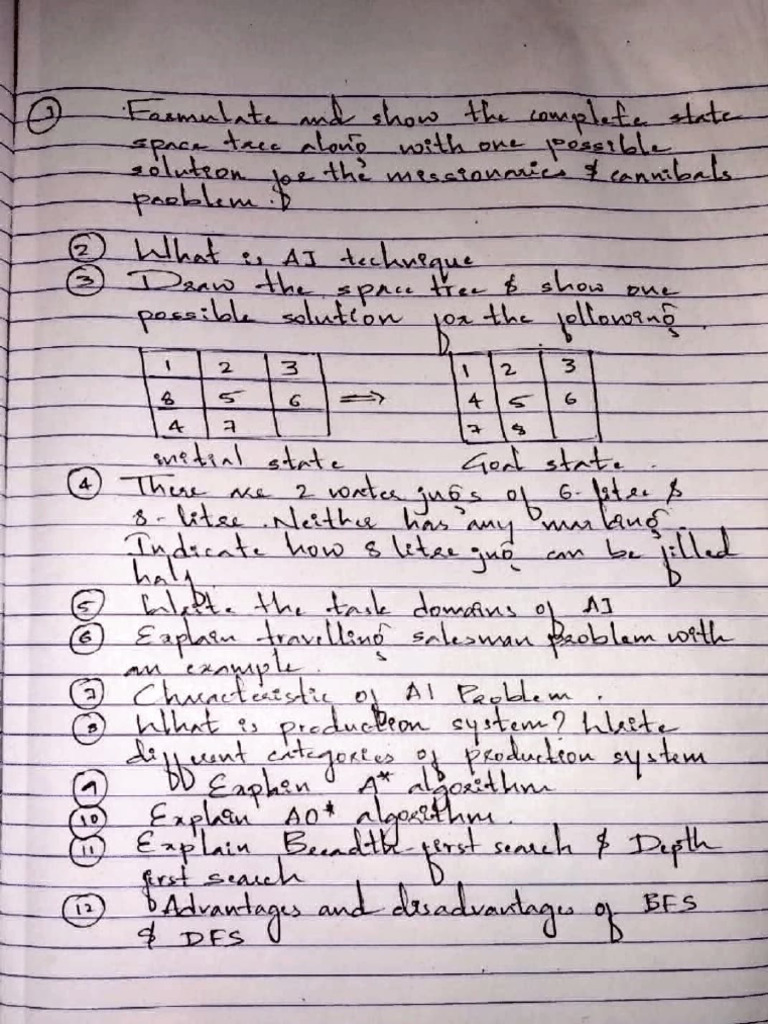 ① Formulate and show the complete state
space tree along with one possible
solution for the missionaries & cannibals
problem.
② What is AI technique
③ Draw the space tree & show one
possible solution for the following.
1 2 3 1 2 3
8 5 6 ⇒ 4 5 6
4 7 7 8
initial state Goal state.
④ There are 2 water jugs of 6-litre &
8-litre. Neither has any marking.
Indicate how 8 litre jug can be filled
half.
⑤ Write the task domains of AI
⑥ Explain travelling salesman problem with
an example.
⑦ Characteristic of AI Problem.
⑧ What is production system? Write
different categories of production system
⑨ Explain A* algorithm
⑩ Explain AO* algorithm.
⑪ Explain Breadth-first search & Depth
first search
⑫ Advantages and disadvantages of BFS
& DFS